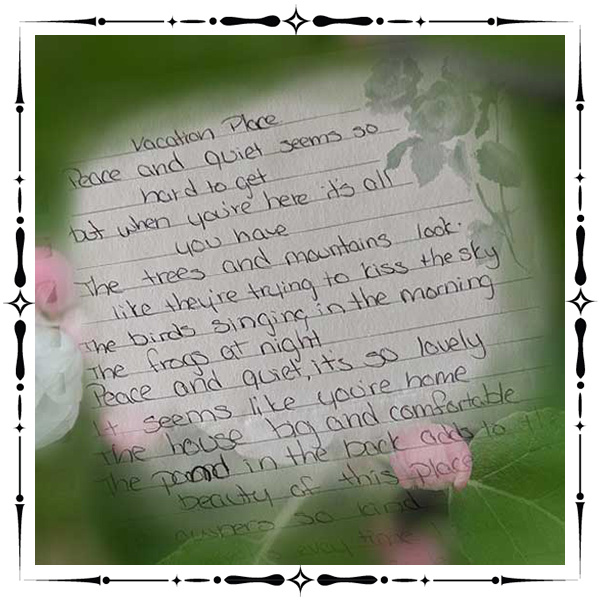 Vacation Place
Peace and quiet seems so
hard to get
but when you're here it's all
you have
The trees and mountains look
like they're trying to kiss the sky
The birds singing in the morning
The frogs at night
Peace and quiet, it's so lovely
It seems like you're home
The house big and comfortable
The pond in the back adds to
beauty of this place
owners so kind
every time